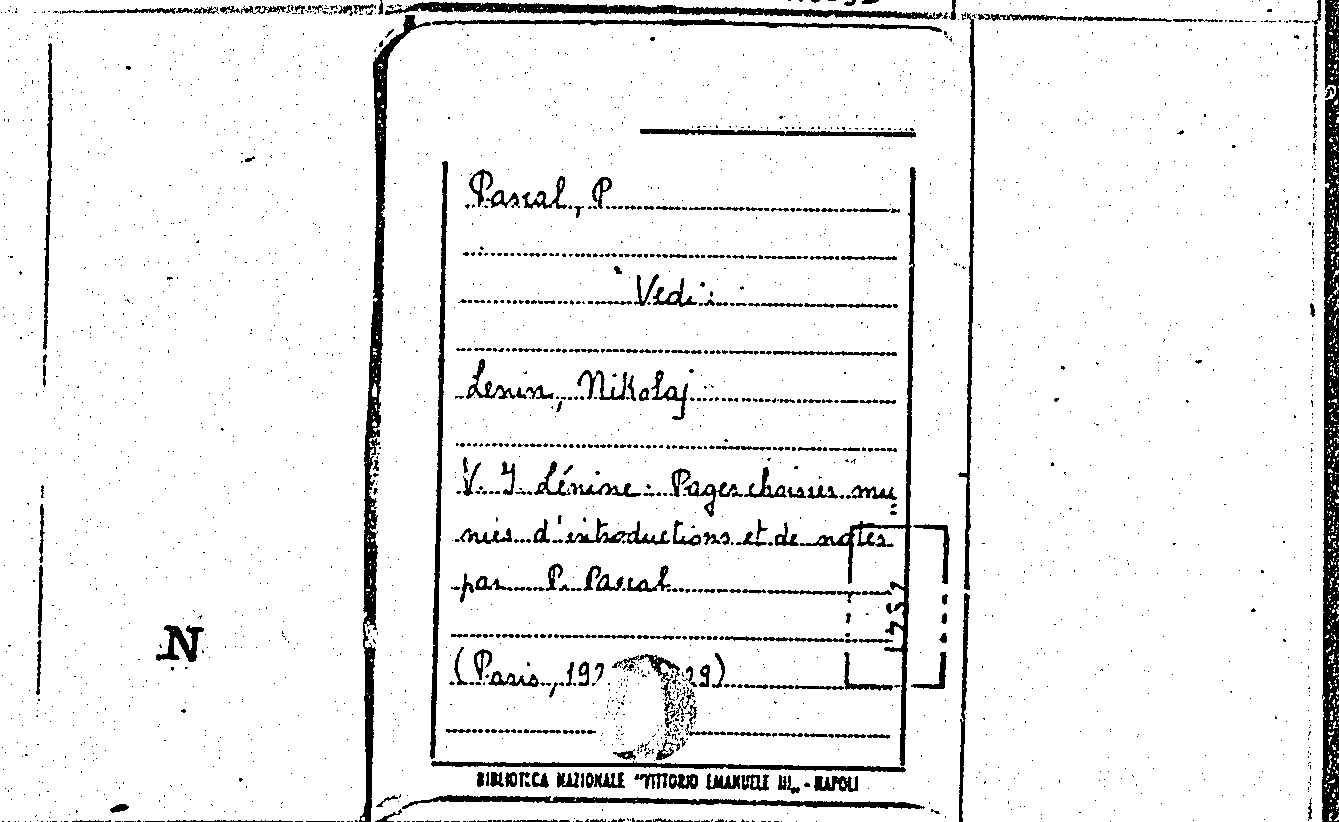 Pascal, P
Vedi:
Lenin, Nikolaj
V. I Lénine. Pages choisies mu
nies d'introductions et de notes
par P. Pascal
(Paris, 192 29)
N
BIBLIOTECA NAZIONALE "VITTORIO EMANUELE III„ - NAPOLI